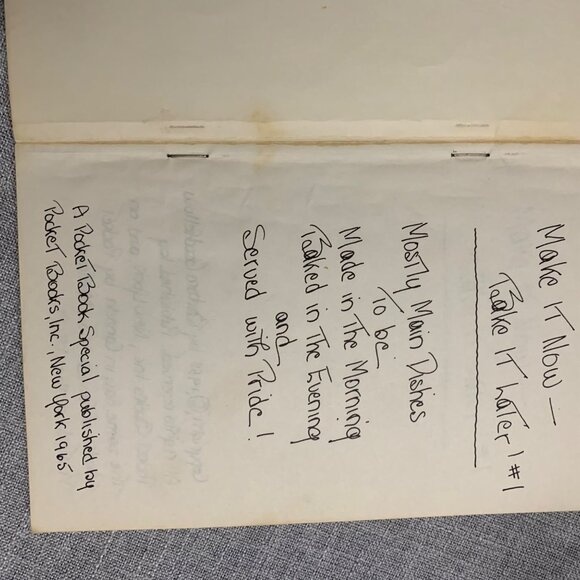 Make IT Now —
Bake IT Later! #1
Mostly Main Dishes
To be
Made in The Morning
Baked in The Evening
and
Served with Pride!
A Pocket Book Special published by
Pocket Books, Inc., New York 1965